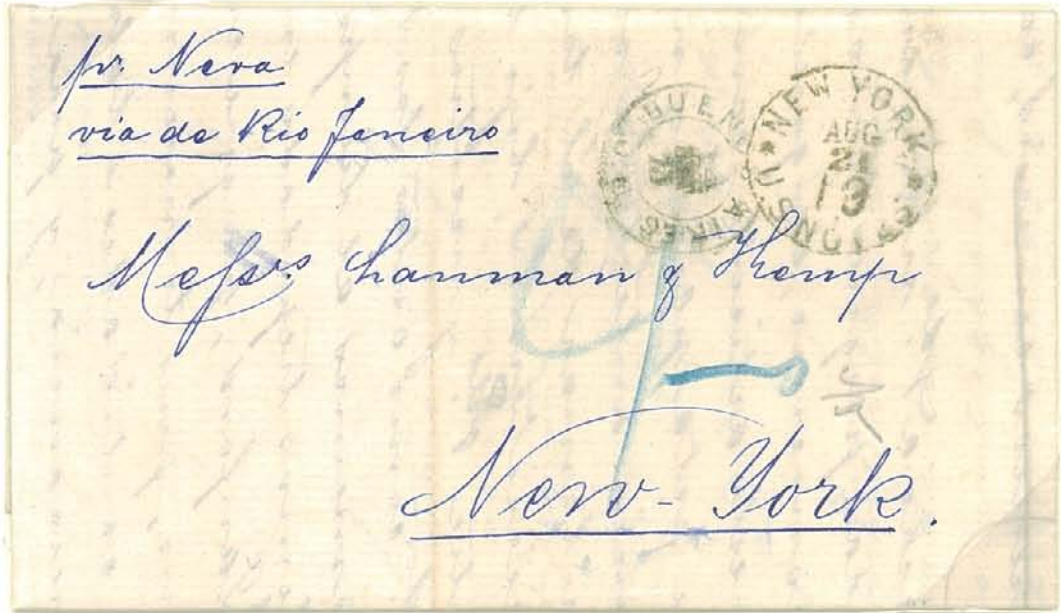 pr. Neva
via de Rio Janeiro
BUENOS AIRES
NEW YORK
AUG
21
Messrs Lanman & Kemp
New-York.